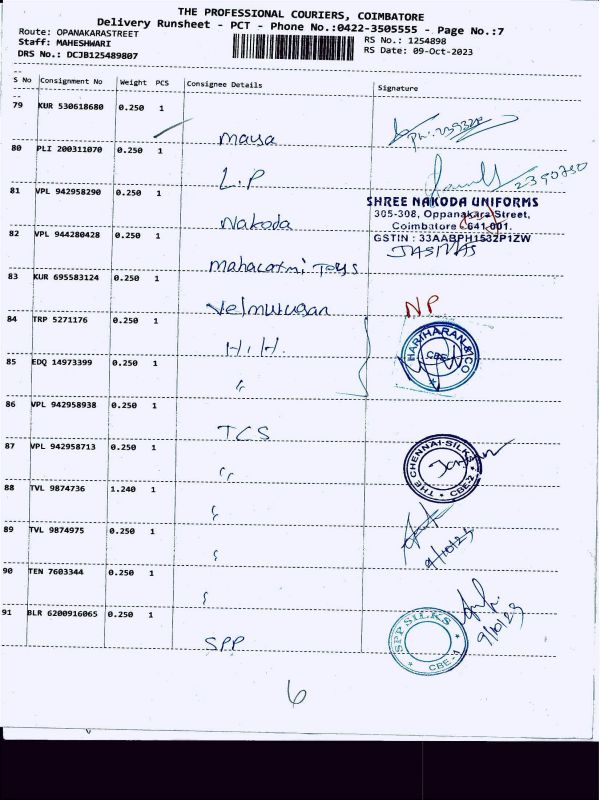 THE PROFESSIONAL COURIERS, COIMBATORE
Delivery Runsheet - PCT - Phone No.:0422-3505555 - Page No.:7
Route: OPANAKARASTREET
RS No.: 1254898
Staff: MAHESHWARI
RS Date: 09-Oct-2023
DRS No.: DCJB125489807
S No Consignment No Weight PCS Consignee Details Signature
79 KUR 530618680 0.250 1
maya
80 PLI 200311070 0.250 1
L.P
2390750
81 VPL 942958290 0.250 1
Nakoda
SHREE NAKODA UNIFORMS
305-308, Oppanakara Street,
Coimbatore - 641 001.
GSTIN : 33AABPH1532P1ZW
82 VPL 944280428 0.250 1
mahalaxmi Toys
83 KUR 695583124 0.250 1
Velmurugan
NP
84 TRP 5271176 0.250 1
H.H.
HARIHARAN & CO
CBE
85 EDQ 14973399 0.250 1
"
86 VPL 942958938 0.250 1
TCS
87 VPL 942958713 0.250 1
"
THE CHENNAI SILKS
CBE-2
88 TVL 9874736 1.240 1
"
89 TVL 9874975 0.250 1
"
9/10/23
90 TEN 7603344 0.250 1
"
91 BLR 6200916065 0.250 1
SPP
SPP SILKS
CBE-1
9/10/23
6